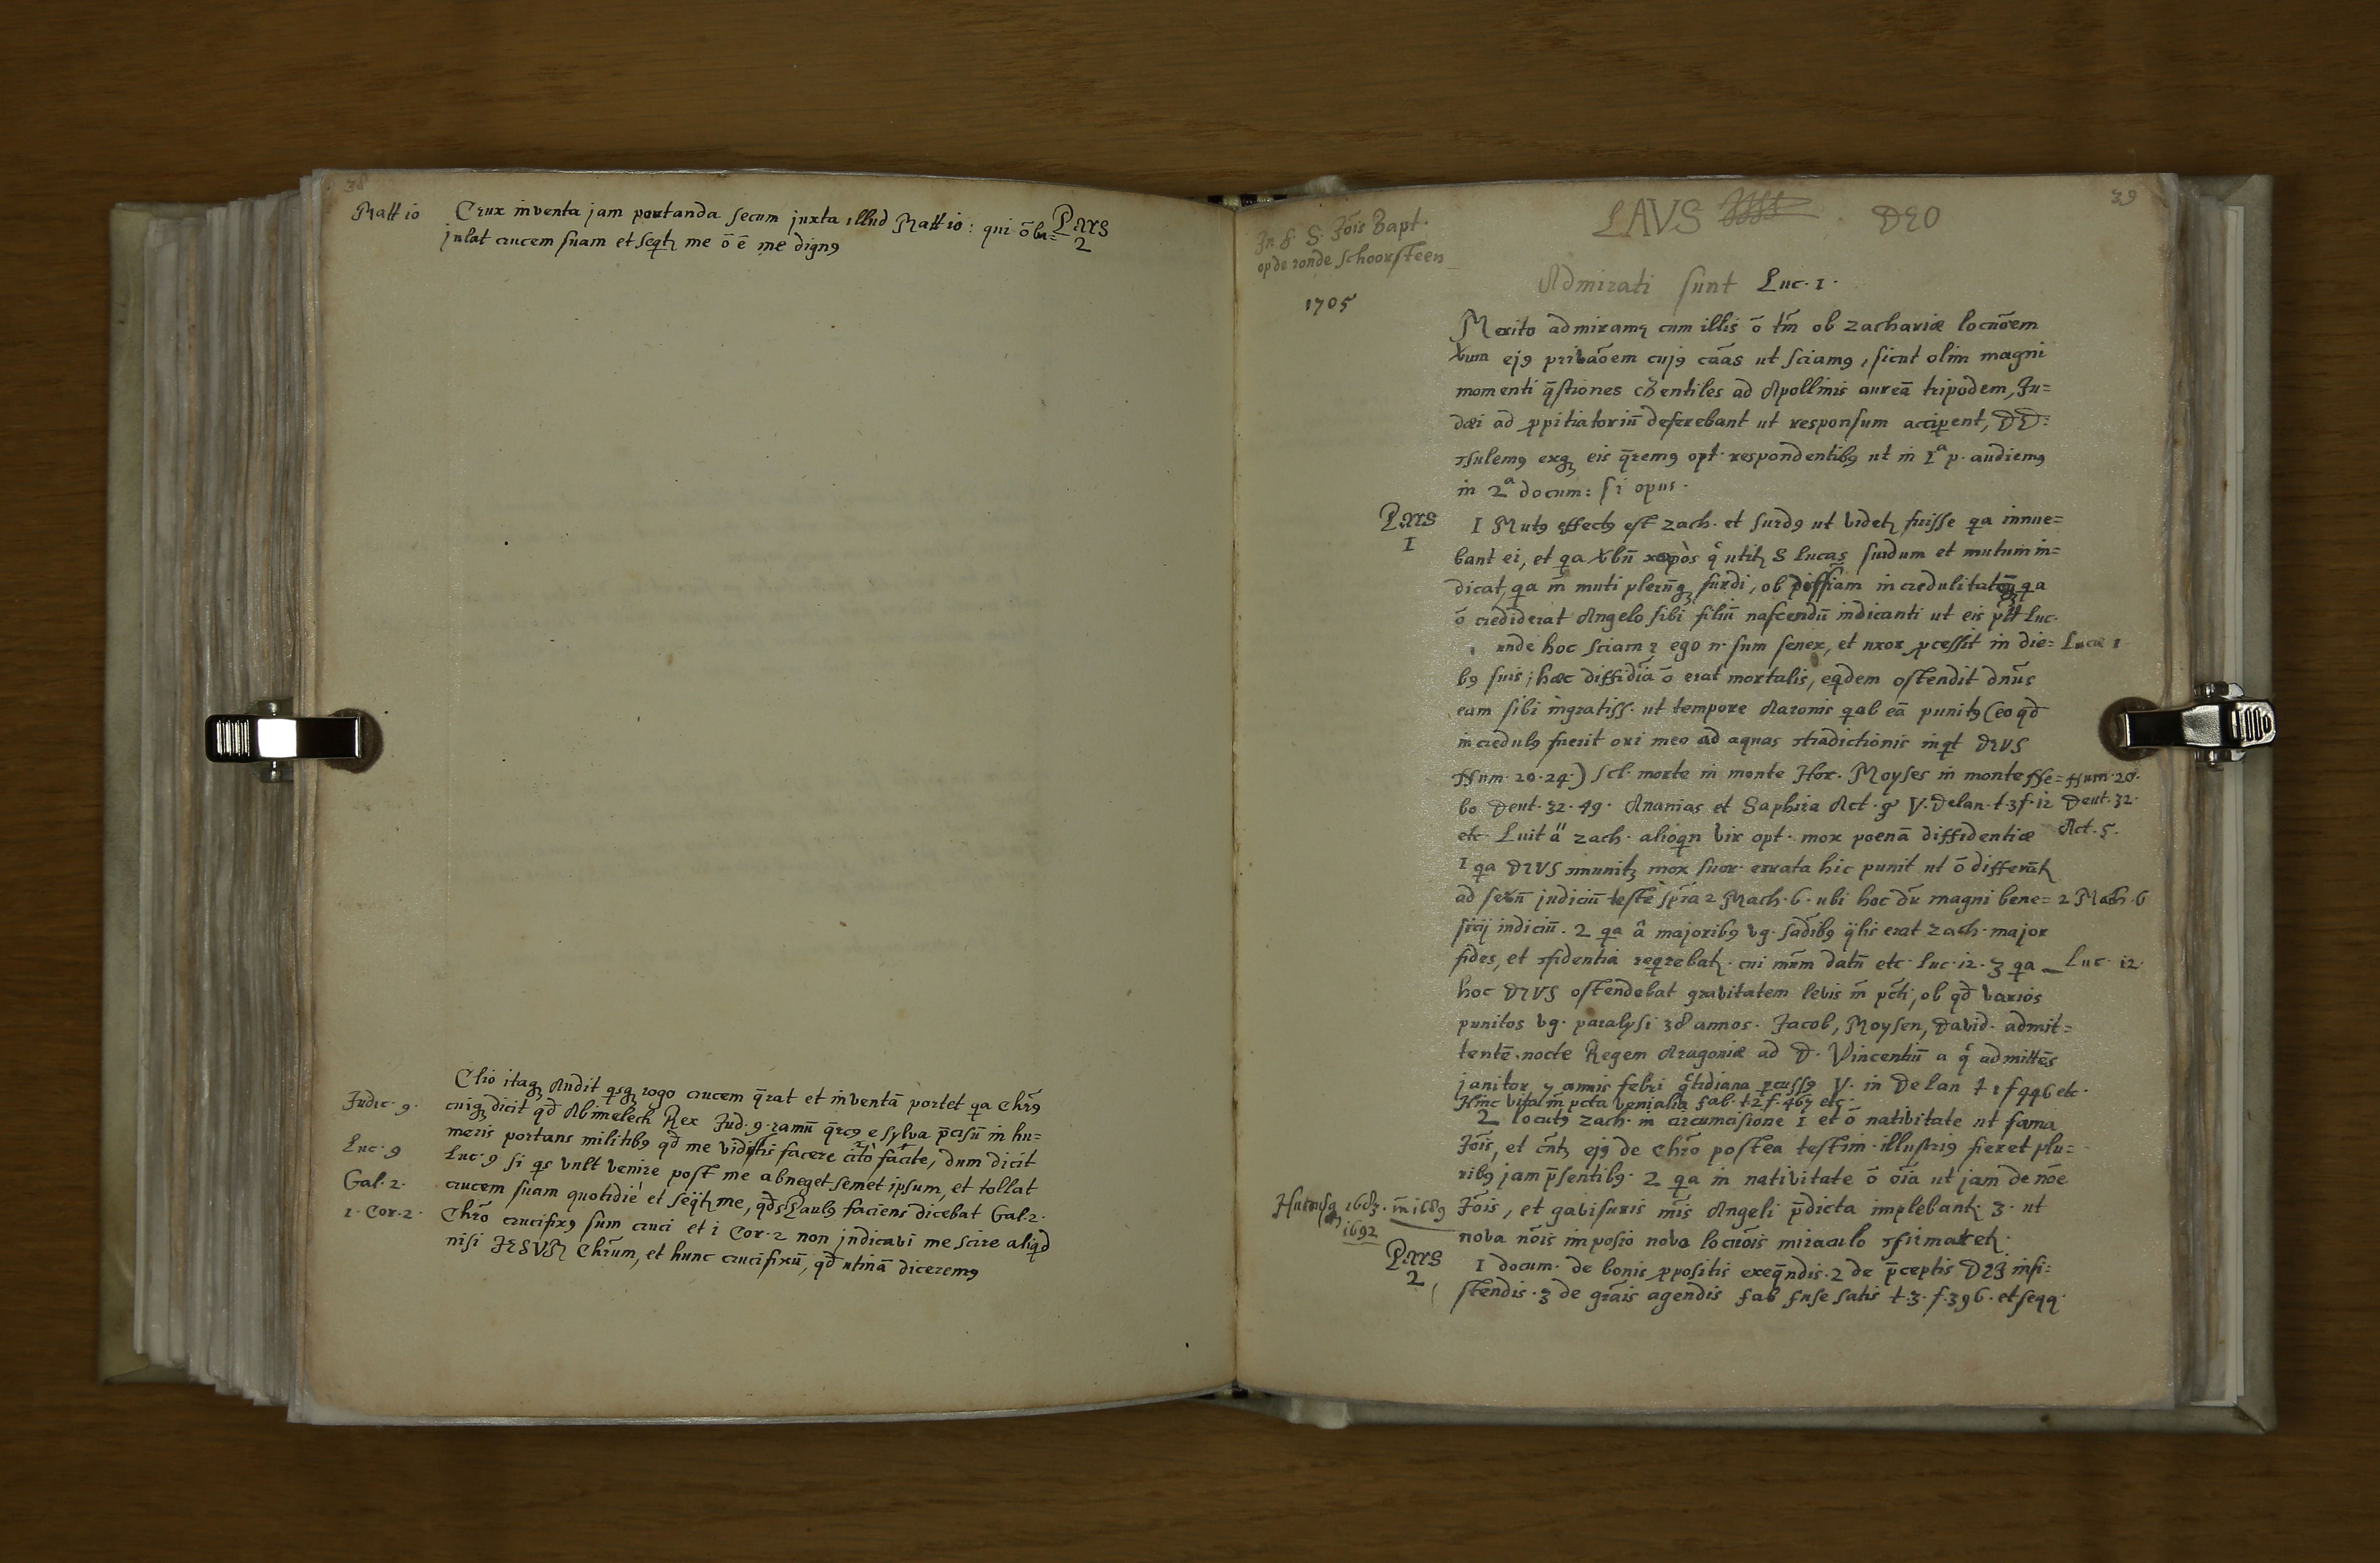 38
Matt 10
Crux inventa jam portanda secum juxta illud Matt 10: qui ō ba=
julat crucem suam et seqtʒ me ō ē me dignꝯ
Pars
2
Clio itaqʒ Audit qsqʒ rogo crucem q̄rat et inventā portet qa Chrꝯ
cuiqʒ dicit qđ Abimelech Rex Jud. 9. ramū q̄rcꝯ e sylva p̄cisū in hu=
meris portans militibꝯ qđ me vidistis facere citò facite, dum dicit
Luc. 9 si qs vult venire post me abneget semet ipsum, et tollat
crucem suam quotidiè et seqtʒ me, qđ S Paulꝯ faciens dicebat Gal. 2.
Chrō crucifixꝯ sum cruci et 1 Cor. 2 non judicavi me scire aliqđ
nisi JESVM Chrūm, et hunc crucifixū, qđ utinā diceremꝯ
Judic. 9.
Luc. 9
Gal. 2.
1. Cor. 2.
39
In f. S. Jōis Bapt.
op de ronde schoorsteen
1705
LAVS DEO
Admirati sunt Luc. 1.
Merito admiramꝯ cum illis ō tm̄ ob Zachariæ locuōem
Xum ejꝯ privaōem cujꝯ cāas ut sciamꝯ, sicut olim magni
momenti q̄stiones Gentiles ad Apollinis aureā tripodem, Ju=
dæi ad ꝓpitiatoriū deferebant ut responsum acciperent, DD:
ꝯsulemꝯ exqʒ eis q̄remꝯ opt. respondentibꝯ ut in 1ª p. audiemꝯ
in 2ª docum: si opus.
Pars
1
1 Mutꝯ effectꝯ est Zach. et surdꝯ ut videtʒ fuisse qa innue=
bant ei, et qa Xbū κωφòς q utitʒ S Lucas surdum et mutum in=
dicat, qa m̄ muti plerūqʒ surdi, ob diffiam incredulitatem qa
ō crediderat Angelo sibi filiū nascendū indicanti ut eis pl̄t Luc.
1 unde hoc sciam? ego n. sum senex, et uxor ꝓcessit in die=
bꝯ suis; hæc diffidīa ō erat mortalis, eqdem ostendit dnūs
eam sibi ingratiss. ut tempore Aaronis q ab eā punitꝯ (eo qđ
incredulꝯ fuerit ori meo ad aquas ꝯtradictionis inqt DEVS
Num. 20. 24.) scl. morte in monte Hor. Moyses in monte Ne=
bo Deut. 32. 49. Ananias et Saphira Act. 5 V. Delan. t. 3 f. 12
etc. Luit ä Zach. alioqn vir opt. mox poenā diffidentiæ
1 qa DEVS ꝯmunitʒ mox suor. errata hic punit ut ō differātʒ
ad serū judiciū teste spra 2 Mach. 6. ubi hoc dr̄ magni bene=
ficij indiciū. 2 qa â majoribꝯ vg. sadibꝯ q̈lis erat Zach. major
fides, et ꝯfidentia reqrebatʒ. cui mr̄m datū etc. Luc. 12. 3 qa
hoc DEVS ostendebat gravitatem levis m̄ pcti, ob qđ varios
punitos vg. paralysi 38 annos. Jacob, Moysen, David. admit=
tentē nocte Regem Aragoniæ ad D. Vincentiū a q admittēs
janitor 7 annis febri qtidiana ꝑcussꝯ V. in Delan t 1 f 446 etc.
Hinc vita m̄ pcta venialia fab. t 2 f. 467 etc.
2 locutꝯ Zach. in circumcisione 1 et ō nativitate ut fama
Jōis, et cn̄tʒ ejꝯ de Chrō postea testim. illustriꝯ fieret plu=
ribꝯ jam p̄sentibꝯ. 2 qa in nativitate ō oīa ut jam de nōe
Jōis, et gavisuris m̄is Angeli p̄dicta implebantʒ. 3. ut
nova nōis imposio nova locuōis miraculo ꝯfirmaretʒ.
1 docum. de bonis ꝓpositis exeq̄ndis. 2 de p̄ceptis DEI insi=
stendis. 3 de grāis agendis fab fuse satis t. 3. f. 396. et seqq.
Luca 1
Num. 20.
Deut. 32.
Act. 5.
2 Mach. 6
Luc. 12.
1683. in 1689
1692
Pars
2